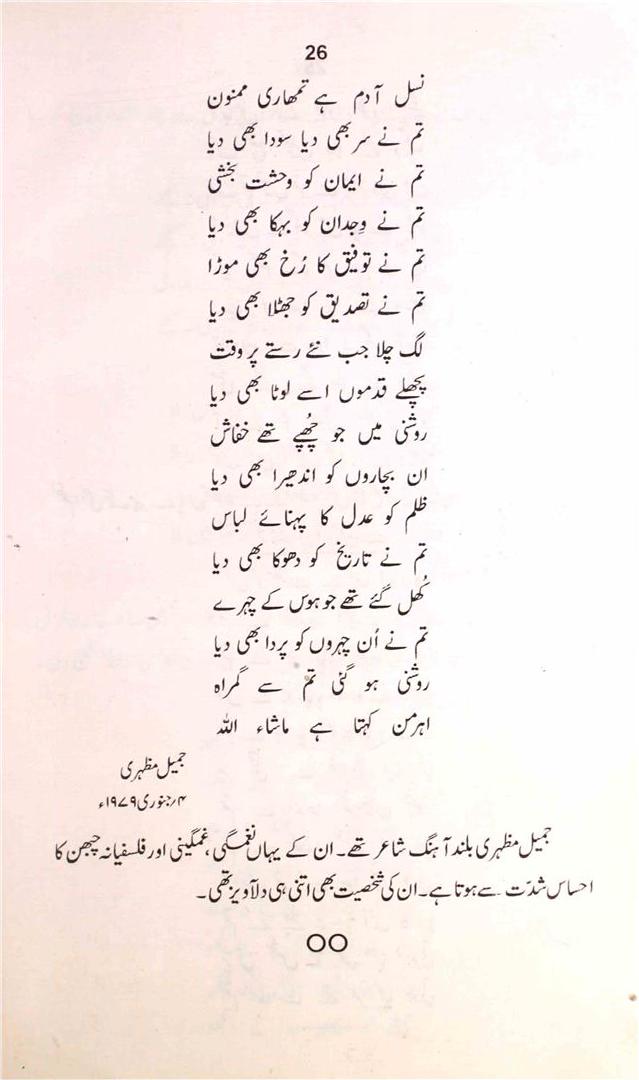 26
نسل آدم ہے تمھاری ممنون
تم نے سر بھی دیا سودا بھی دیا
تم نے ایمان کو وحشت بخشی
تم نے وِجدان کو بہکا بھی دیا
تم نے توفیق کا رُخ بھی موڑا
تم نے تصدیق کو جھٹلا بھی دیا
لگ چلا جب نئے رستے پر وقت
پچھلے قدموں اسے لوٹا بھی دیا
روشنی میں جو چُھپے تھے خفاش
ان بچاروں کو اندھیرا بھی دیا
ظلم کو عدل کا پہنائے لباس
تم نے تاریخ کو دھوکا بھی دیا
کُھل گئے تھے جو ہوس کے چہرے
تم نے اُن چہروں کو پردا بھی دیا
روشنی ہو گئی تم سے گمراہ
اہرمن کہتا ہے ماشاء اللہ
جمیل مظہری
۴؍جنوری ۱۹۷۹ء
جمیل مظہری بلند آہنگ شاعر تھے۔ ان کے یہاں نغمگی، غمگینی اور فلسفیانہ چبھن کا
احساس شدّت سے ہوتا ہے۔ ان کی شخصیت بھی اتنی ہی دلآویز تھی۔